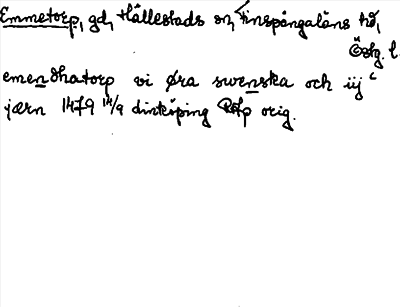 Emmetorp, gd, Hällestads sn, Finspångaläns hd,
Östg. l.
emendhatorp vi øra swenska och iij c
jærn 1479 14/9 Linköping RAp orig.